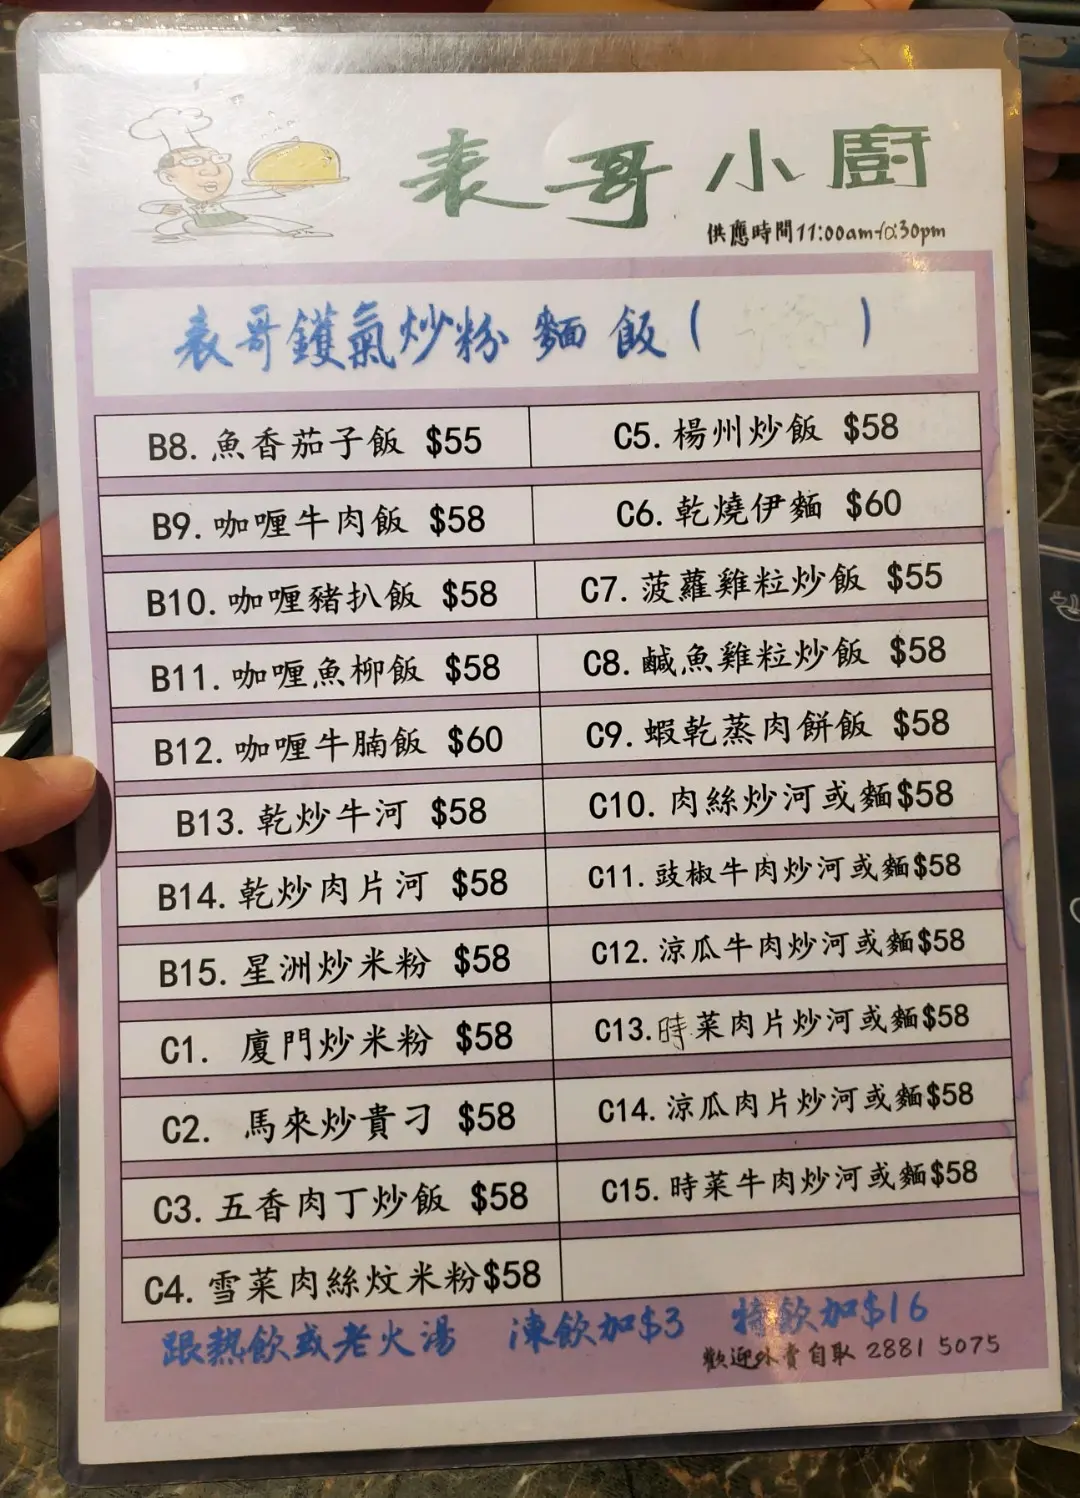 表哥小廚
供應時間11:00am-10:30pm
表哥鑊氣炒粉 麵 飯 ( )
B8. 魚香茄子飯 $55
C5. 楊州炒飯 $58
B9. 咖喱牛肉飯 $58
C6. 乾燒伊麵 $60
B10. 咖喱豬扒飯 $58
C7. 菠蘿雞粒炒飯 $55
B11. 咖喱魚柳飯 $58
C8. 鹹魚雞粒炒飯 $58
B12. 咖喱牛腩飯 $60
C9. 蝦乾蒸肉餅飯 $58
B13. 乾炒牛河 $58
C10. 肉絲炒河或麵$58
B14. 乾炒肉片河 $58
C11. 豉椒牛肉炒河或麵$58
B15. 星洲炒米粉 $58
C12. 涼瓜牛肉炒河或麵$58
C1. 廈門炒米粉 $58
C13. 時菜肉片炒河或麵$58
C2. 馬來炒貴刁 $58
C14. 涼瓜肉片炒河或麵$58
C3. 五香肉丁炒飯 $58
C15. 時菜牛肉炒河或麵$58
C4. 雪菜肉絲炆米粉$58
跟熱飲或老火湯 凍飲加$3 特飲加$16
歡迎外賣自取 2881 5075